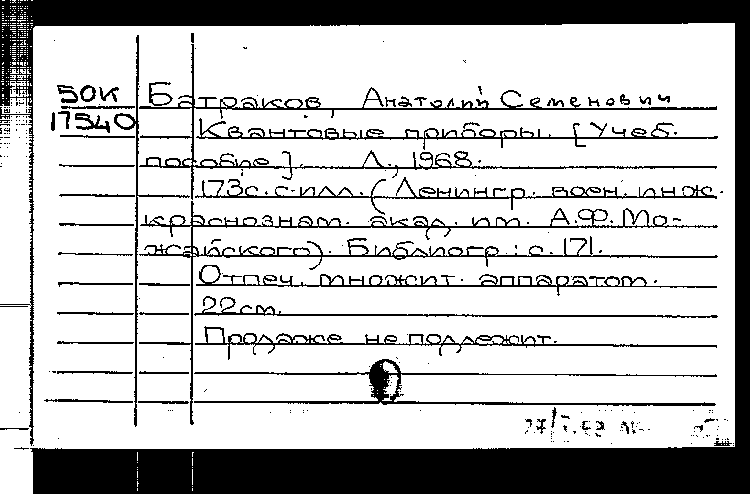 50К Батраков, Анатолий Семенович
17540 Квантовые приборы. [Учеб.
пособие]. Л., 1968.
173с. с илл. (Ленингр. воен. инж.
краснознам. акад. им. А.Ф. Мо-
жайского). Библиогр.: с. 171.
Отпеч. множит. аппаратом.
22см.
Продаже не подлежит.